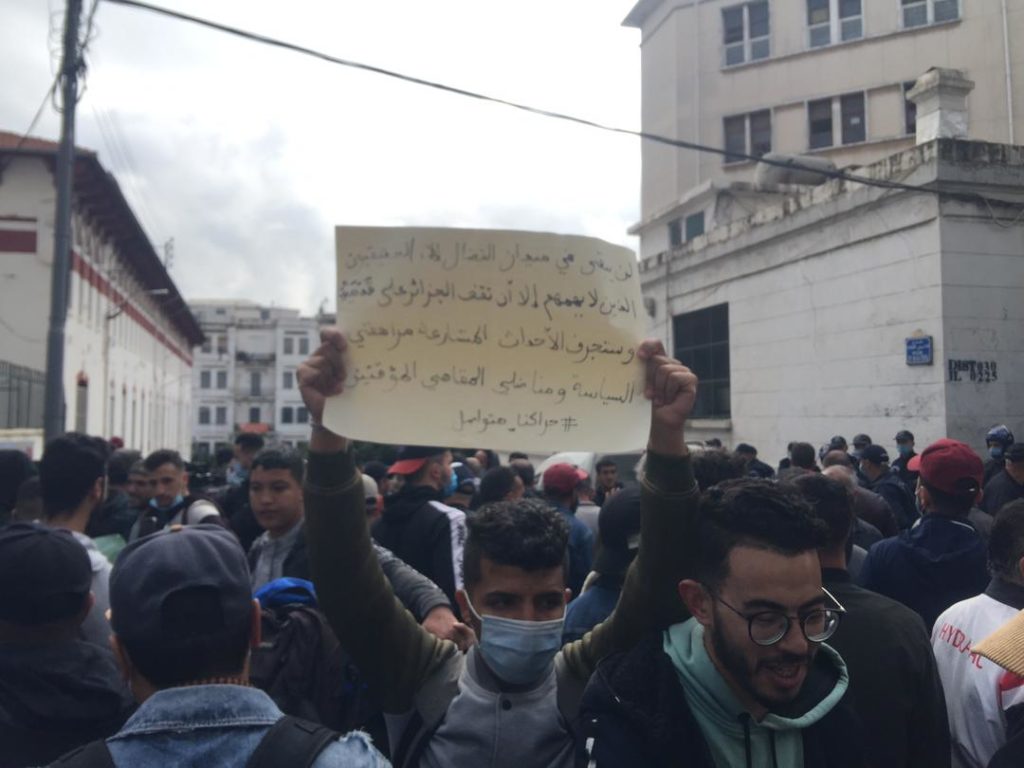 لن يبقى في ميدان النضال إلا الحقيقيين
الذين لا يهمهم إلا أن تقف الجزائر على قدميها
وستجرف الأحداث المتسارعة مراهقي
السياسة ومناضلي المقاهي المؤقتين
#حراكنا_متواصل
DIST 030
IL 0225